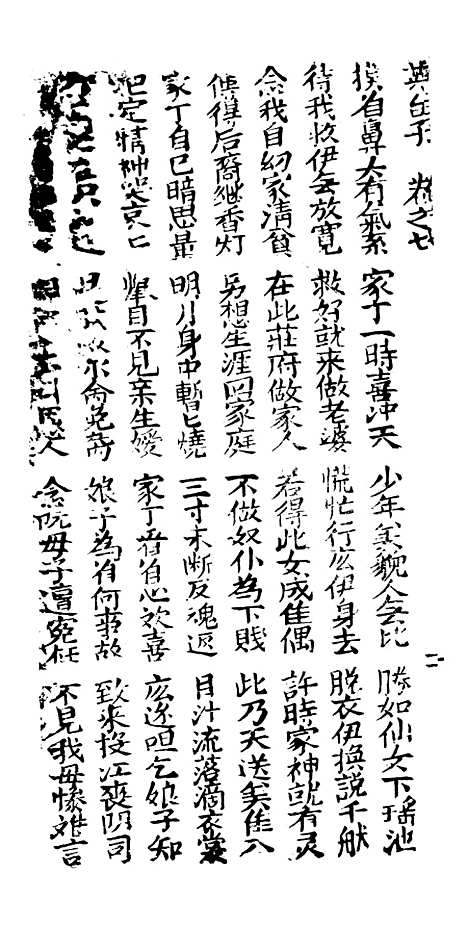 卷之七 家丁一時喜冲天 少年美貌人無比 勝如仙女下瑶池
摸着鼻大有氣索 救好就来做老婆 慌忙行庅伊身去 脱衣伊换説千般
待我救伊去放寛 在此莊府做家人 若得此女成佳偶 許時家神就有灵
念我自幼家清貧 另想生涯囬家庭 不做奴仆為下賎 此乃天送美佳人
使得后裔継香灯 明月身中暫匕燒 三寸未断反魂返 目汁流落滴衣裳
家丁自已暗思量 目不見亲生爱 家丁看着心欢喜 庅迩呾乞娘子知
把定精神哭哀匕 娘子為着何事故 致来投江丧阴司
念阮母子遭冤枉 不見我母惨难言